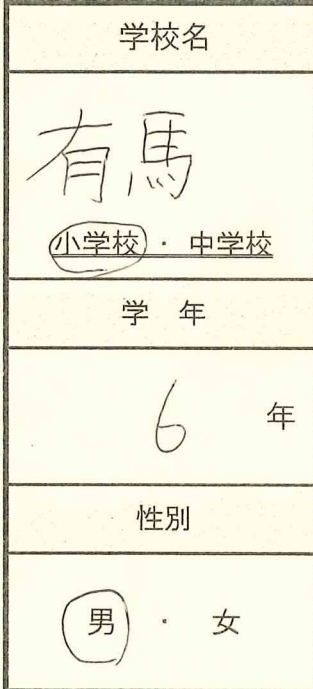 学校名
有馬
小学校 ・ 中学校
学 年
6 年
性別
男 ・ 女